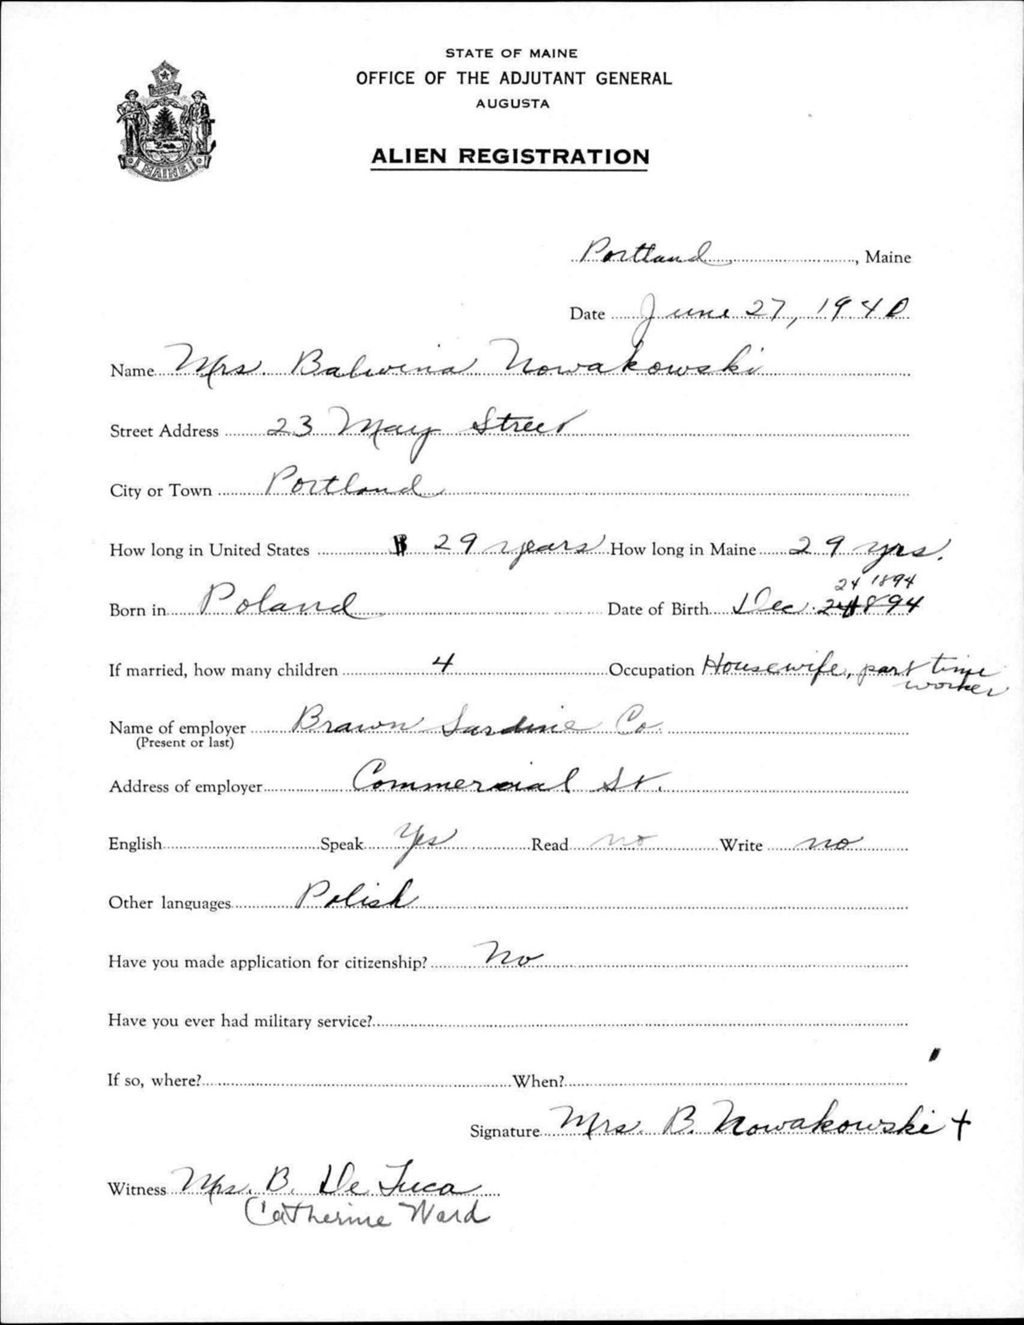 STATE OF MAINE
OFFICE OF THE ADJUTANT GENERAL
AUGUSTA
ALIEN REGISTRATION
MAINE
Portland, Maine
Date June 27, 1940
Name Mrs. Balwina Nowakowski
Street Address 23 May Street
City or Town Portland
How long in United States 29 years How long in Maine 29 yrs.
24 1894
Born in Poland Date of Birth Dec. 24 1894
If married, how many children 4 Occupation Housewife, part time worker
Name of employer Brawn Sardine Co.
(Present or last)
Address of employer Commercial St.
English Speak Yes Read no Write no
Other languages Polish
Have you made application for citizenship? No
Have you ever had military service?
If so, where? When?
Signature Mrs. B. Nowakowski +
Witness Mrs. B. De Luca
Catherine Ward